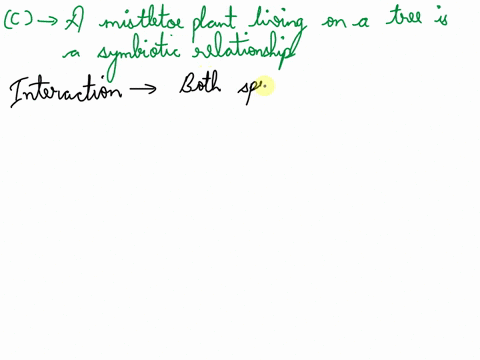 (C) → A mistletoe plant living on a tree is
a symbiotic relationship
Interaction → Both sp